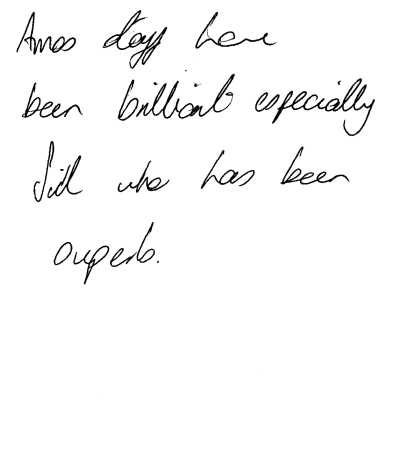 Amos staff have
been brilliant especially
who has been
superb.